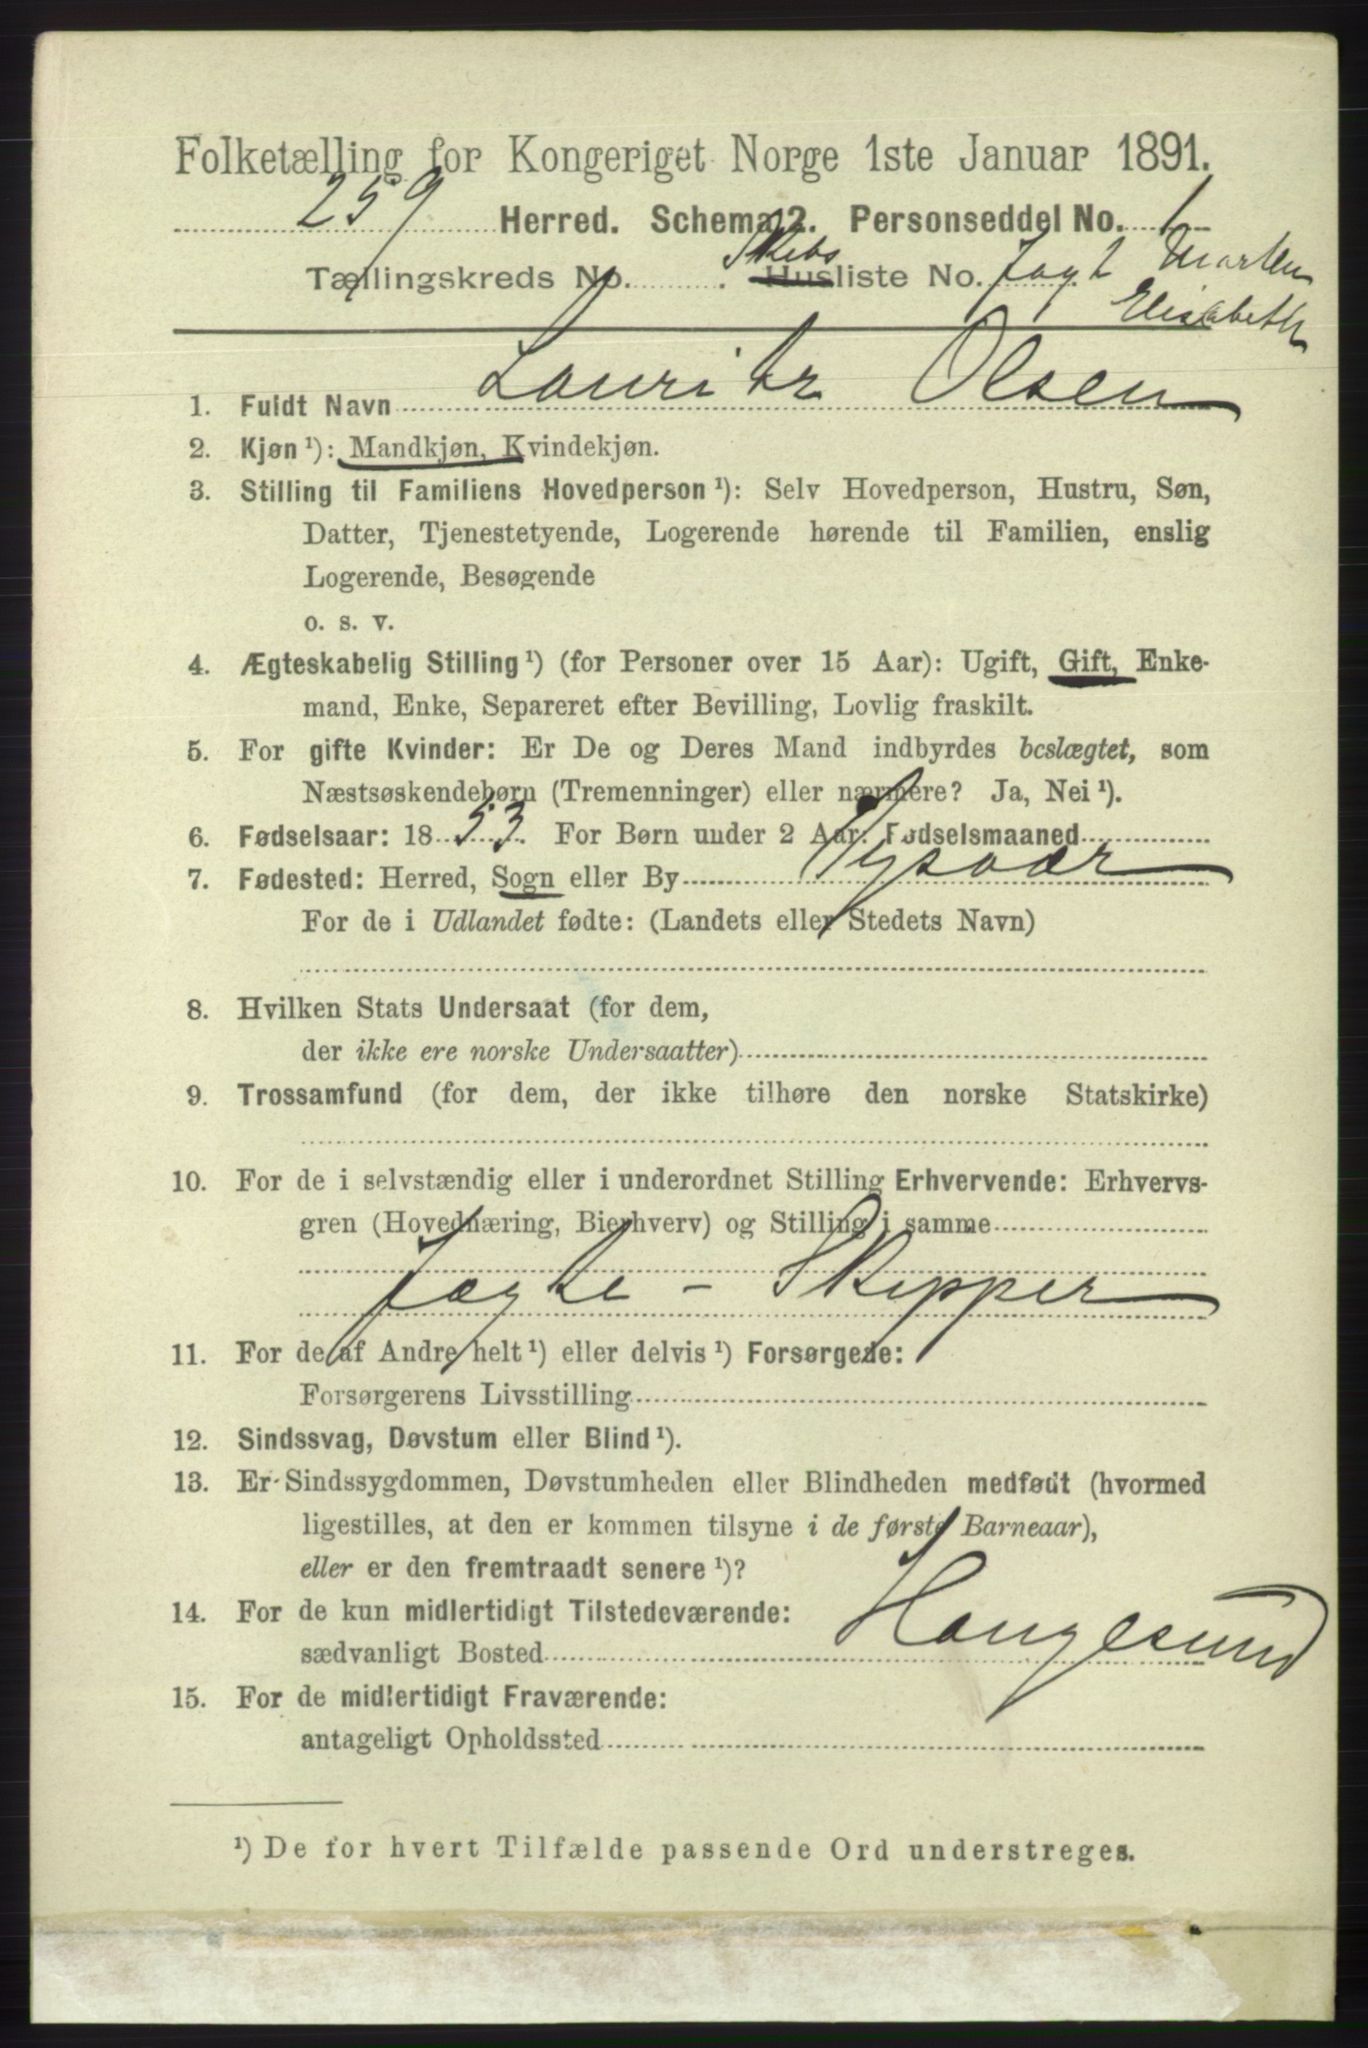 Folketælling for Kongeriget Norge 1ste Januar 1891.
259 Herred. Schema 2. Personseddel No. 1
Tællingskreds No. . Skibs Husliste No. Jagt
Elisabeth
1. Fuldt Navn Lauritz Olsen
2. Kjøn ¹): Mandkjøn, Kvindekjøn.
3. Stilling til Familiens Hovedperson ¹): Selv Hovedperson, Hustru, Søn,
Datter, Tjenestetyende, Logerende hørende til Familien, enslig
Logerende, Besøgende
o. s. v.
4. Ægteskabelig Stilling ¹) (for Personer over 15 Aar): Ugift, Gift, Enke-
mand, Enke, Separeret efter Bevilling, Lovlig fraskilt.
5. For gifte Kvinder: Er De og Deres Mand indbyrdes beslægtet, som
Næstsøskendebørn (Tremenninger) eller nærmere? Ja, Nei ¹).
6. Fødselsaar: 18 53. For Børn under 2 Aar: Fødselsmaaned
7. Fødested: Herred, Sogn eller By Tysvær
For de i Udlandet fødte: (Landets eller Stedets Navn)
8. Hvilken Stats Undersaat (for dem,
der ikke ere norske Undersaatter)
9. Trossamfund (for dem, der ikke tilhøre den norske Statskirke)
10. For de i selvstændig eller i underordnet Stilling Erhvervende: Erhvervs-
gren (Hovednæring, Bierhverv) og Stilling i samme
Jagte - Skipper
11. For de af Andre helt ¹) eller delvis ¹) Forsørgede:
Forsørgerens Livsstilling
12. Sindssvag, Døvstum eller Blind ¹).
13. Er Sindssygdommen, Døvstumheden eller Blindheden medfødt (hvormed
ligestilles, at den er kommen tilsyne i de første Barneaar),
eller er den fremtraadt senere ¹)?
14. For de kun midlertidigt Tilstedeværende:
sædvanligt Bosted Haugesund
15. For de midlertidigt Fraværende:
antageligt Opholdssted
¹) De for hvert Tilfælde passende Ord understreges.